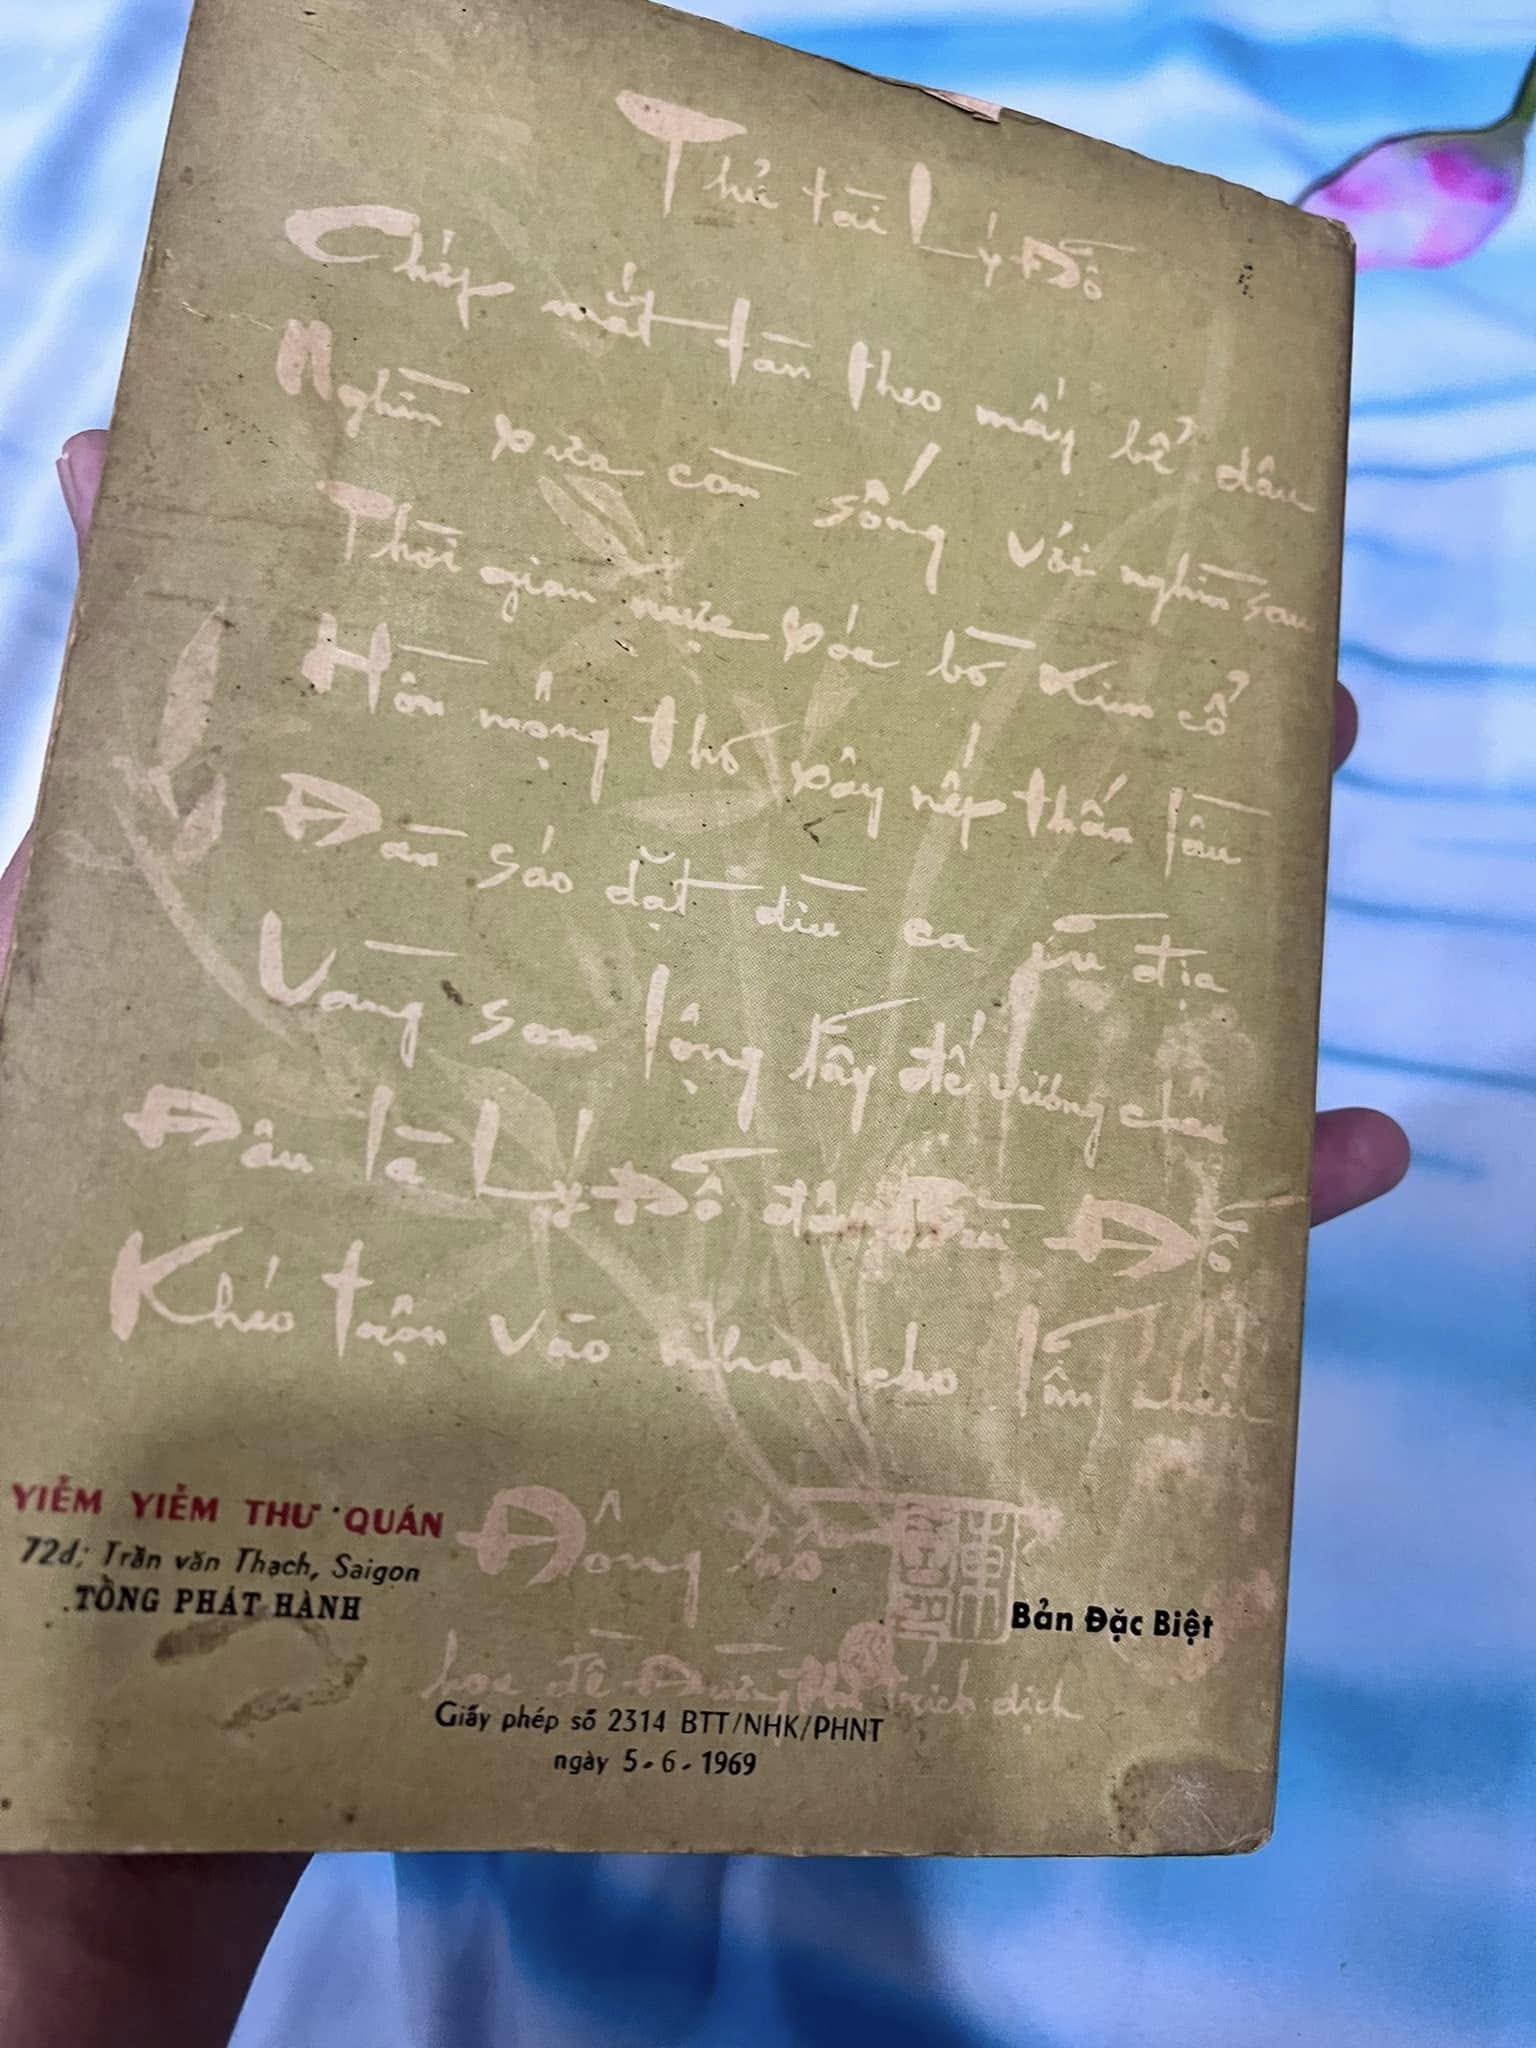 Thử tài Lý Đỗ
Chớp mắt tàn theo mấy bể dâu
Nghìn xưa còn sống với nghìn sau
Thời gian mực xóa bờ kim cổ
Hồn mộng thơ xây nếp thấn lầu
Đàn sáo dặt dìu ca địa
Vàng son lộng lẫy đế vương chầu
Đâu là Lý Đỗ đâu Đỗ
Khéo trộn vào nhau cho lẫn nhau
Đông
họa đề Đường thi trích dịch
YIỄM YIỄM THƯ QUÁN
72d; Trần văn Thạch, Saigon
TỔNG PHÁT HÀNH
Bản Đặc Biệt
Giấy phép số 2314 BTT/NHK/PHNT
ngày 5-6-1969